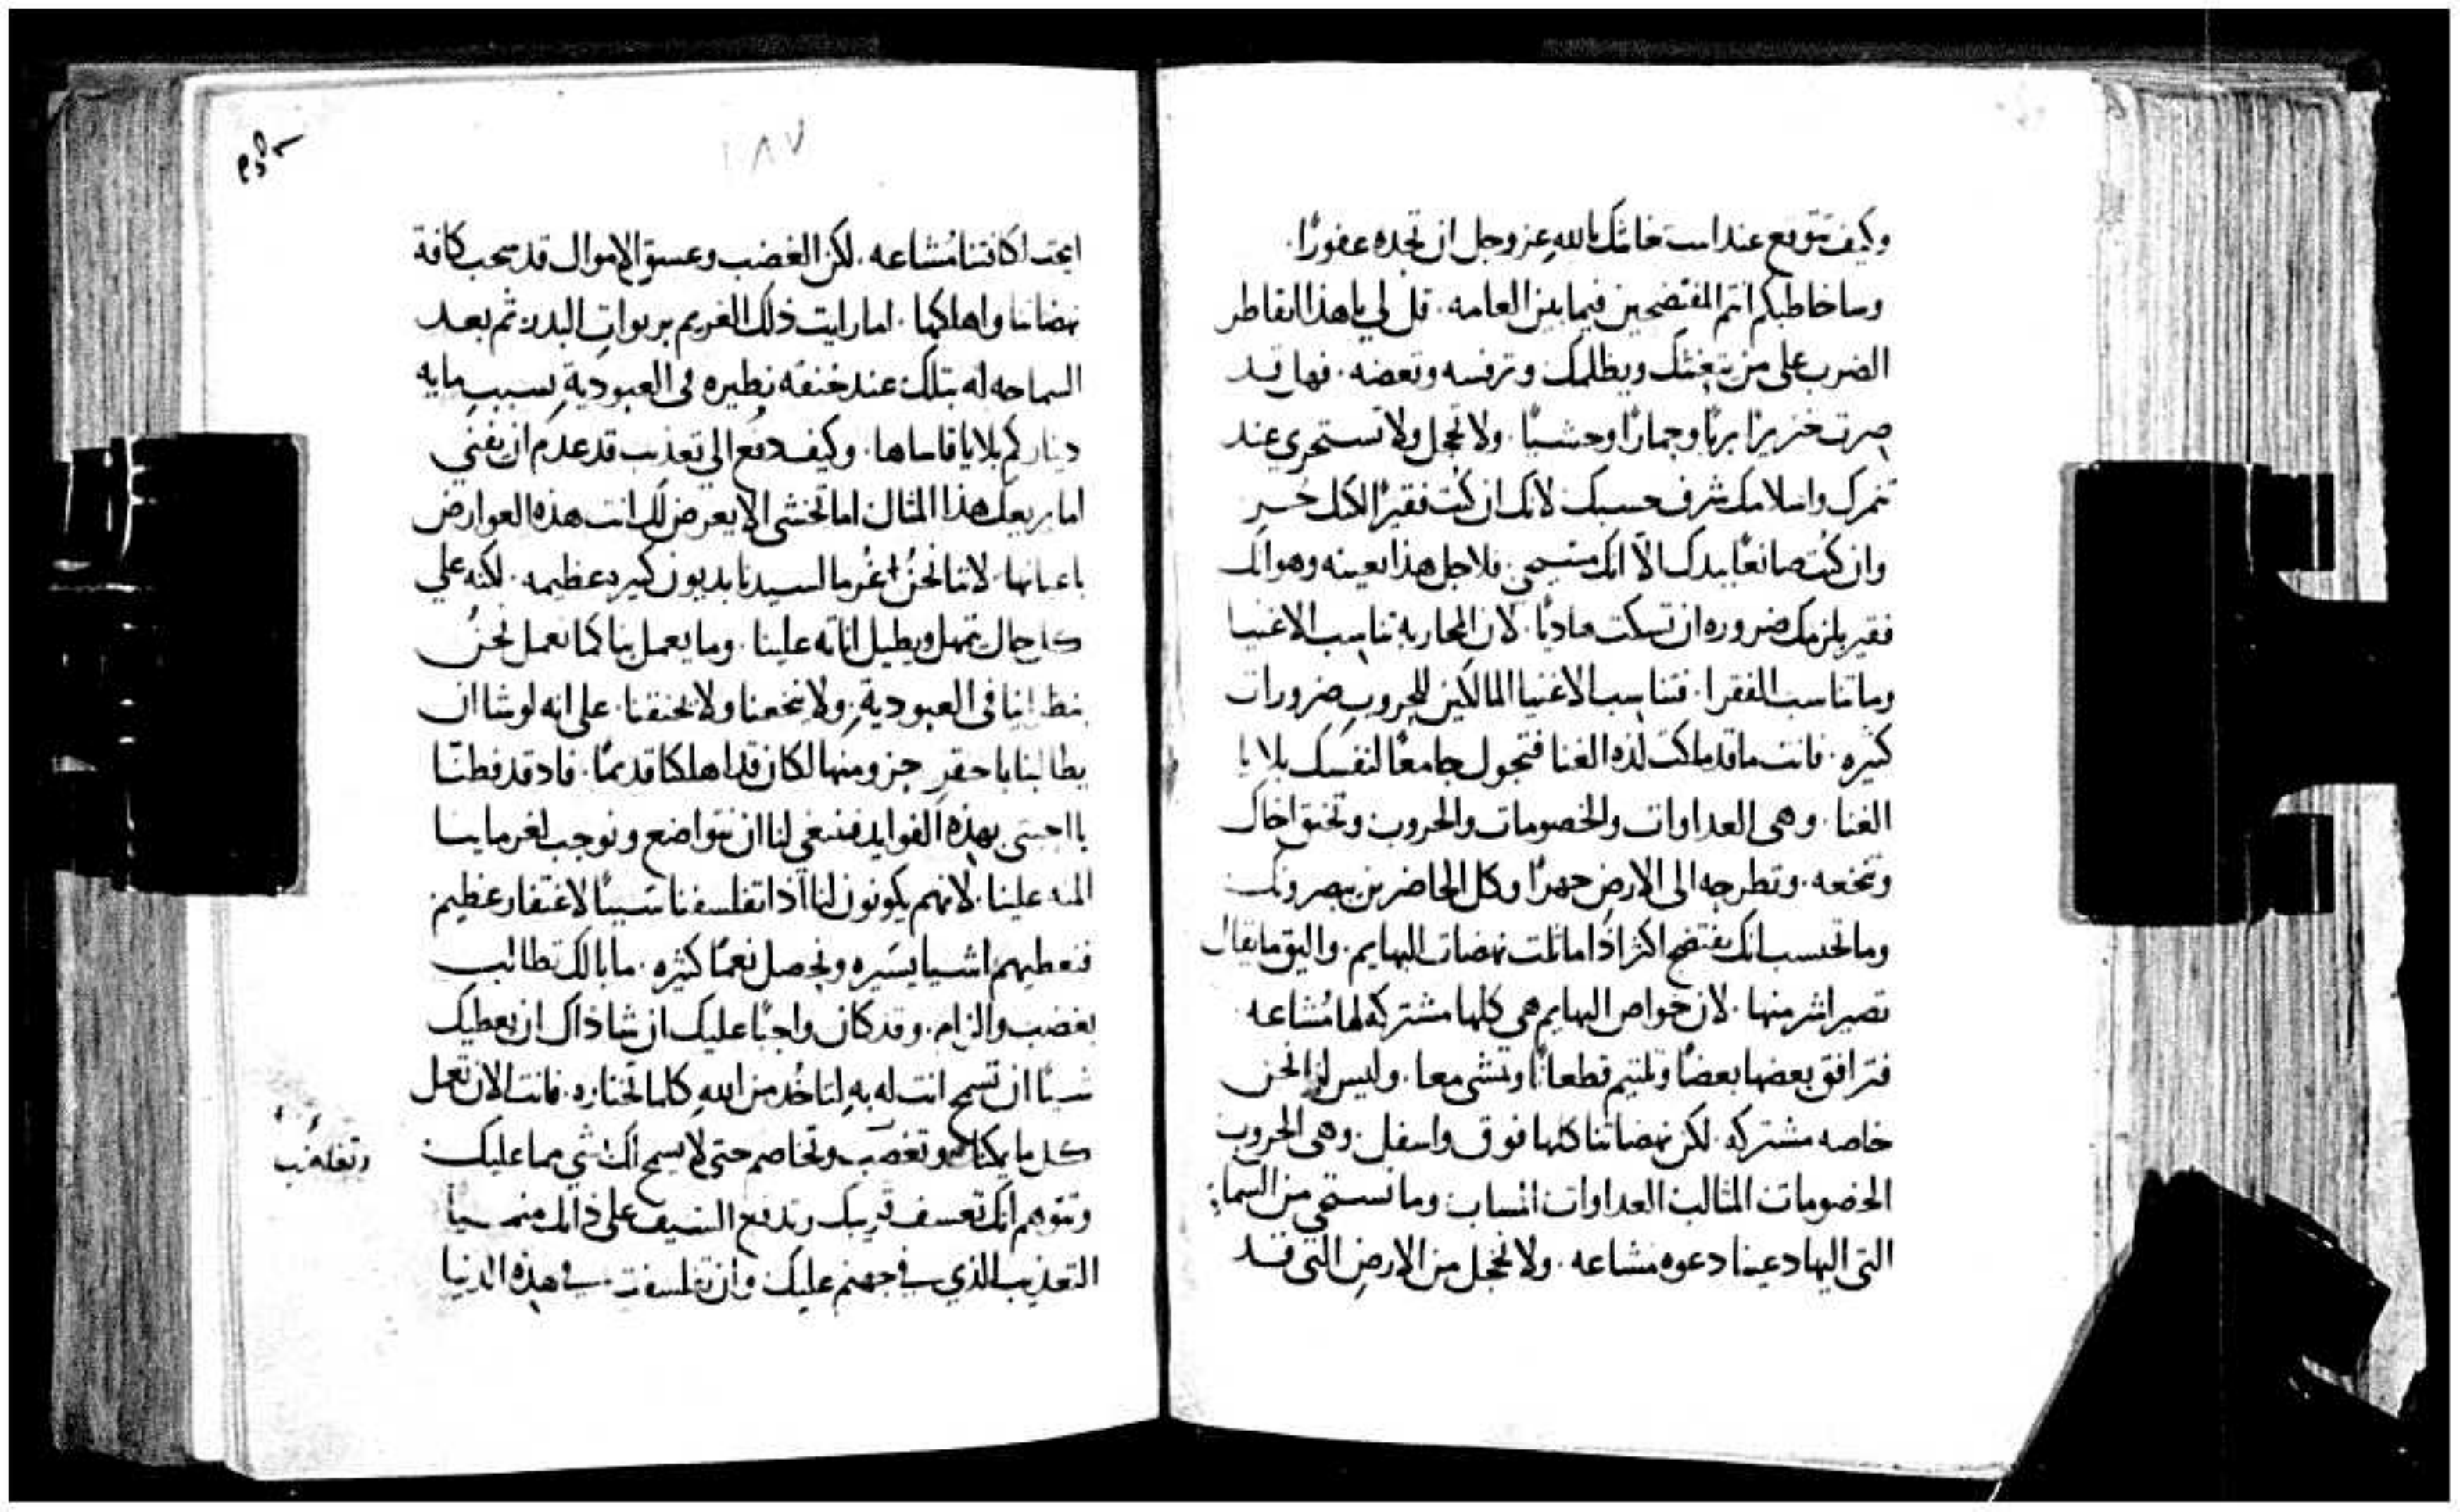 وكيف تتوقع عند استغاثتك بالله عز وجل ان تجده غفورًا.
وما خاطبكم انتم المفتضحين فيما بين العامه. قل لي يا هذا اتقاطر
الضرب على من يتغثك ويظلمك وترفسه وتعضه. فهل قد
صرت خنزيرًا بريًا وحمارًا وحشيًا. ولا تخجل ولا تستحري عند
تنمرك واسلامك شرف حسبك لانك ان كنت فقيرًا لكنك حُر
وان كنت صانعًا بيدك الا انك مسيحي. فلاجل هذا بعينه وهو انك
فقير يلزمك ضروره ان تسكت هاديًا. لان المحاربة تناسب الاغنيا
وما تناسب الفقرا. فتناسب الاغنيا المالكين للحروب ضرورات
كثيره. فانت ما قد ملكت لذه الغنا فتجول جامعًا لنفسك بلايا
الغنا. وهي العداوات والخصومات والحروب وتخنق اخاك
وتنخعه. وتطرحه الى الارض جهرًا وكل الحاضرين يبصرونك
وما تحتسب انك تفتضح اكثر اذا ماثلت نهضات البهايم. واليق ما يقال
تصير اشر منها. لان خواص البهايم هي كلها مشتركه لها مُشاعه
فترافق بعضها بعضًا وتلتيم قطعانًا وتمشي معا. وليس لنا نحن
خاصه مشتركه. لكن نهضاتنا كلها فوق واسفل. وهي الحروب
الخصومات المثالب العداوات المساب وما نستحي من السما
التي اليها دعينا دعوه مشاعه. ولا نخجل من الارض التي قد
١٨٧
ابيحت لكافتنا مُشاعه. لكن الغضب وعسق الاموال قد سحب كافة
نهضاتنا واهلكها. اما رايت ذلك الغريم بربوات البدر ثم بعد
السماحه له بتلك عند خنقه نظيره في العبودية بسبب مايه
دينار كم بلايا قاساها. وكيف دفع الى تعذيب قد عدم ان يفني
اما يريعك هذا المثال اما تخشى الا يعرض لك انت هذه العوارض
باعيانها. لاننا نحن غُرما لسيدنا بديون كثيره عظيمه. لكنه على
كل حال يتمهل ويطيل اناته علينا. وما يعمل بنا كما نعمل نحن
بنظراينا في العبودية. ولا ينخعنا ولا يخنقنا. على انه لو شا ان
يطالبنا باحقر جزو منها لكان قد اهلكنا قديمًا. فاد قد فطنّا
يا احبتي بهذه الفوايد فينبغي لنا ان نتواضع ونوجب لغرماينا
المنه علينا. لانهم يكونون لنا اذا تفلسفنا سببًا لاغتفار عظيم
فنعطيهم اشيا يسيره ونحصل نعمًا كثيره. ما بالك تطالب
بغضب والزام. وقد كان واجبًا عليك ان شا ذاك ان يعطيك
شيئًا ان تسمح انت له به لتاخُد من الله كلما تختاره. فانت الان تعمل
كل ما يمكنك وتغصب وتخاصم حتى لا يسمح لك شي مما عليك
وتتوهم انك تعسف قريبك وتدفع السيف على ذاتك منميًا
التعذيب الذي في جهنم عليك وان تفلسفت في هذه الدنيا